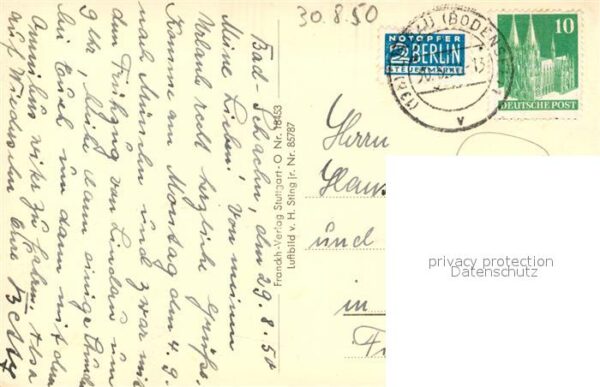 30.8.50
Bad-Schachen, den 29.8.50
Meine Lieben! Von meinem
Urlaub recht herzliche Grüße.
Komme am Montag dem 4.9.
nach München und zwar mit
dem Frühzug von Lindau um
9 Uhr, bleibe dann einige Stunden
bei Euch um dann mit dem
zu fahren. Also
auf Wiedersehn Eure Betty
Franckh-Verlag Stuttgart-O Nr. 18153
Luftbild v. H. Sting jr. Nr. 85787
NOTOPFER
2 BERLIN
STEUERMARKE
(BODENS
10
DEUTSCHE POST
Herrn
Hans
und
in
privacy protection
Datenschutz